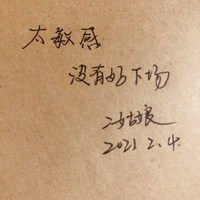 太敏感
没有好下场
2021 2.4.